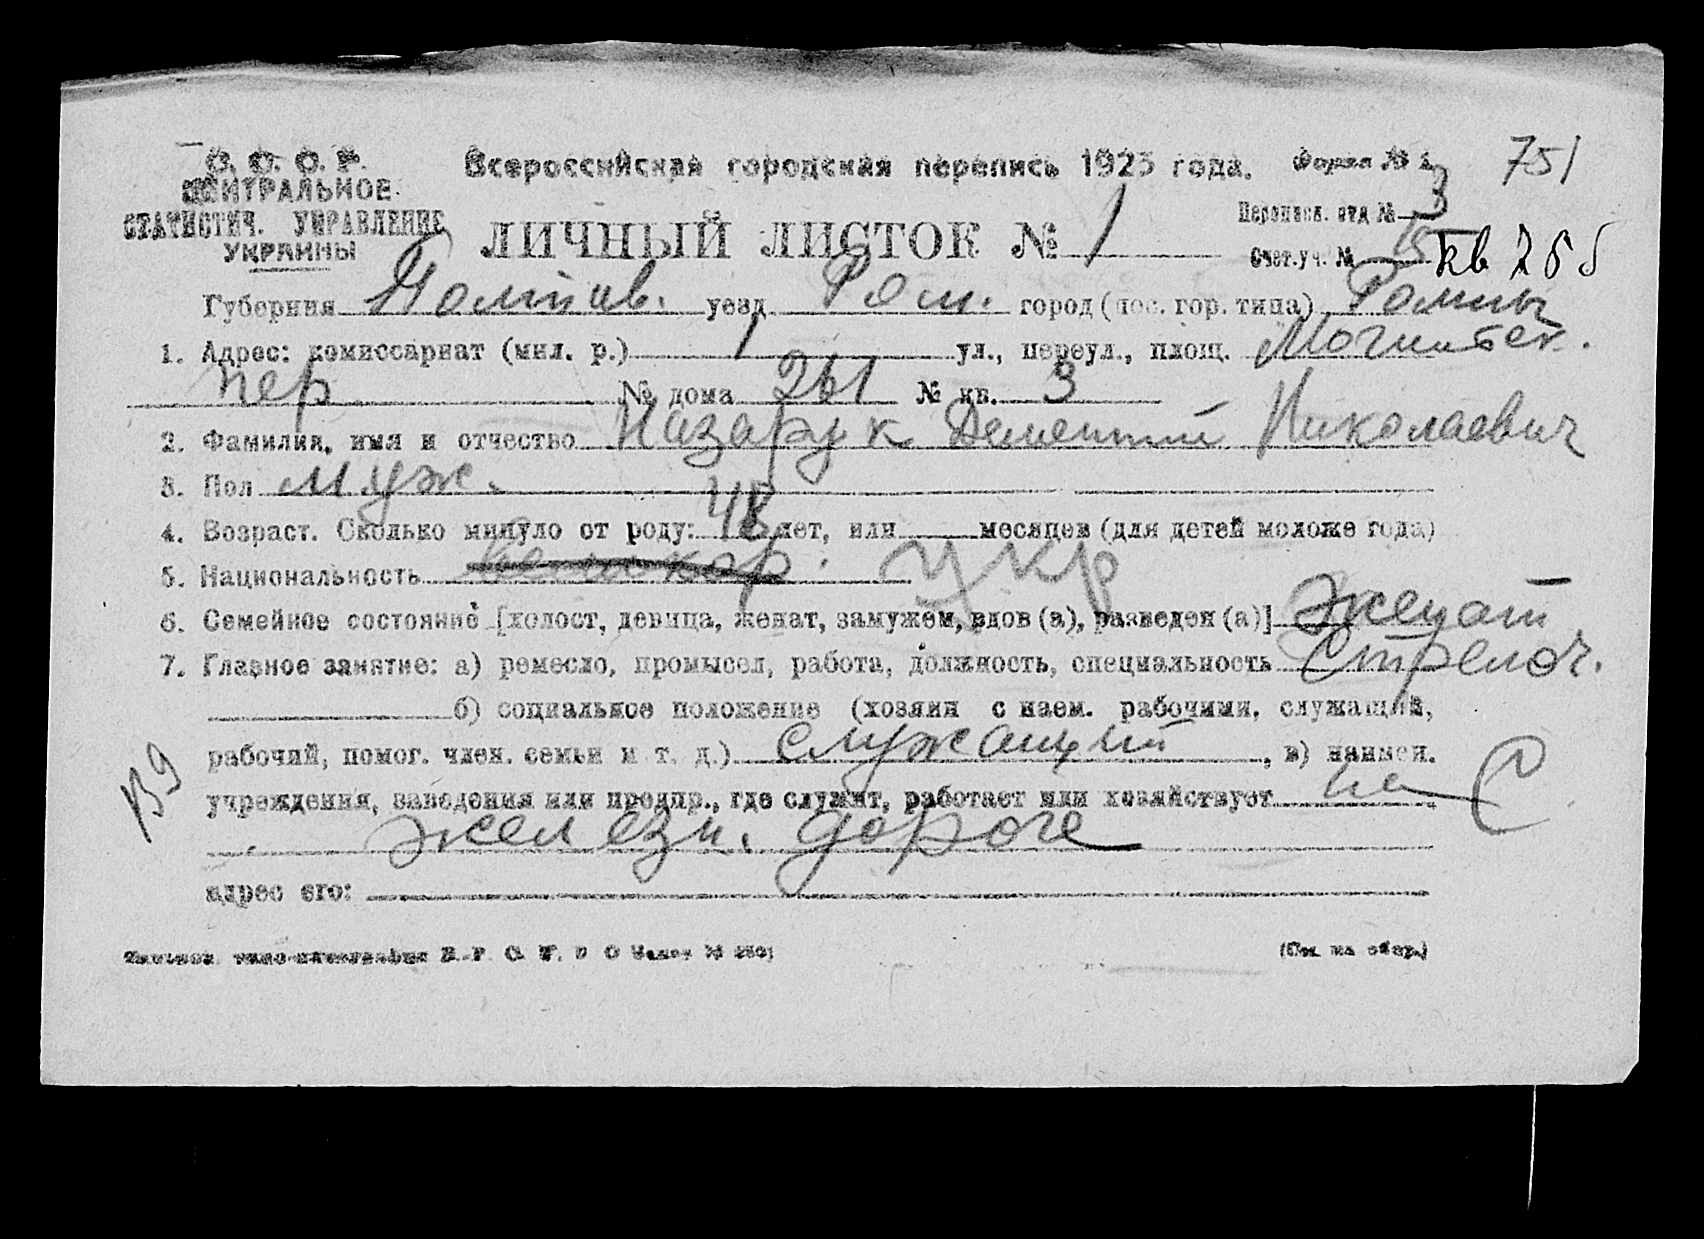 С. С. С. Р.
ЦЕНТРАЛЬНОЕ
СТАТИСТИЧ. УПРАВЛЕНИЕ
УКРАИНЫ
Всероссийская городская перепись 1923 года.
Форма № 1
751
ЛИЧНЫЙ ЛИСТОК № 1
Переписн. отд № 3
Счет.уч. № 15 кв
Губерния Полтав. уезд Ром. город (пос. гор. типа) Ромны
1. Адрес: комиссариат (мил. р.) 1 ул., переул., площ.
пер № дома 261 № кв. 3
2. Фамилия, имя и отчество Назарук Дементий Николаевич
3. Пол муж.
4. Возраст. Сколько минуло от роду: 48 лет, или месяцев (для детей моложе года)
5. Национальность укр
6. Семейное состояние [холост, девица, женат, замужем, вдов (а), разведен (а)] Женат
7. Главное занятие: а) ремесло, промысел, работа, должность, специальность Стрелоч.
б) социальное положение (хозяин с наем. рабочими, служащий,
рабочий, помог. член. семьи и т. д.) служащий, в) наимен.
учреждения, заведения или предпр., где служит, работает или хозяйствует на
железн. дороге
адрес его:
139
(См. на обор.)